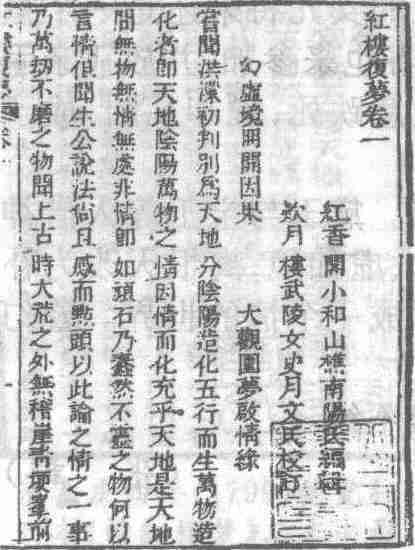 紅樓復夢卷一
紅香閣小和山樵南陽氏編輯
欵月樓武陵女史月文氏校訂
幻虛境冊開因果 大觀園夢啟情緣
嘗聞洪濛初判別為天地分陰陽造化五行而生萬物造
化者卽天地陰陽萬物之情因情而化充乎天地是天地
間無物無情無處非情卽如頑石乃蠢然不靈之物何以
言情但聞生公說法尙且感而點頭以此論之情之一事
乃萬刼不磨之物聞上古時大荒之外無稽崖靑埂峯前